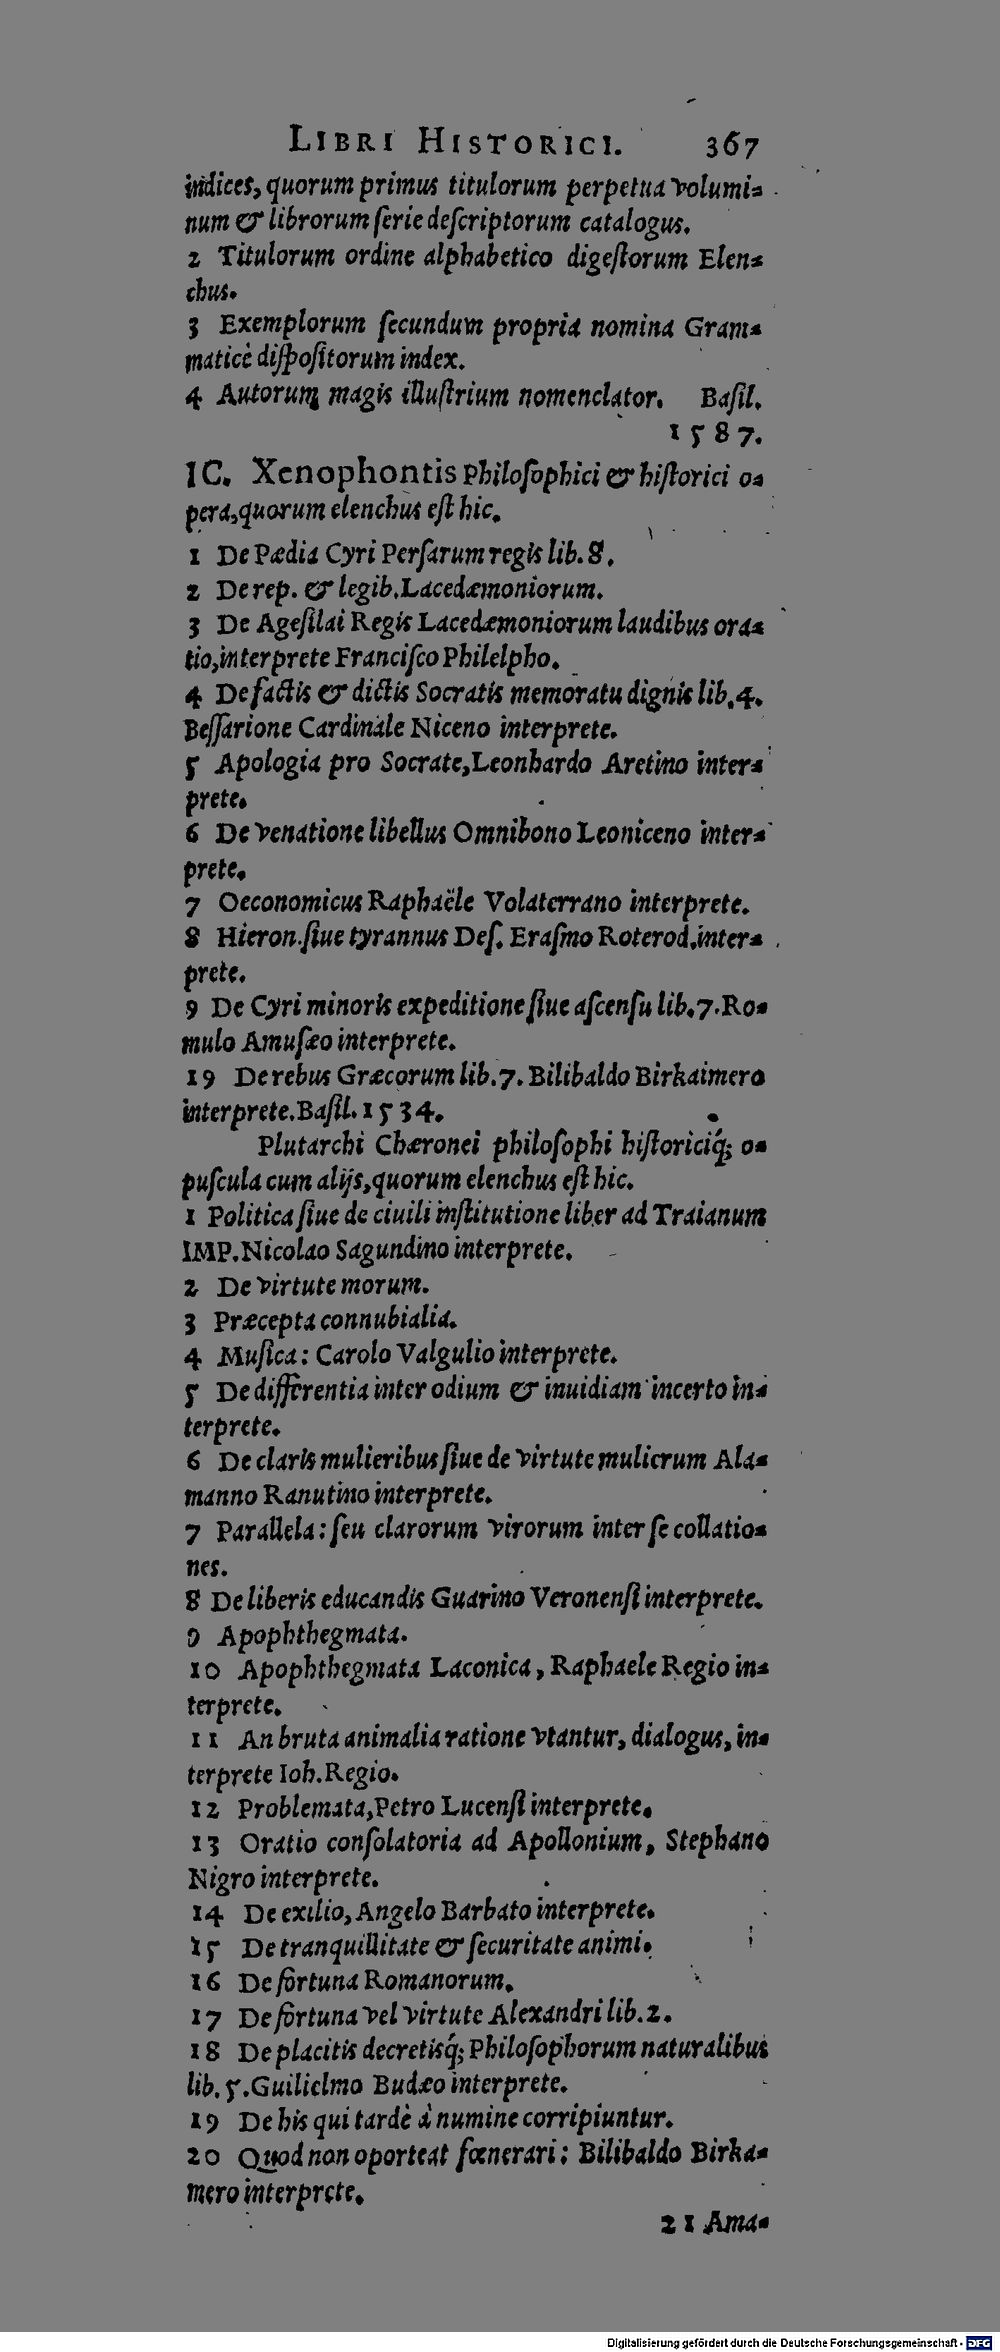 LIBRI HISTORICI. 367
indices, quorum primus titulorum perpetua volumi-
num & librorum ſerie deſcriptorum catalogus.
2 Titulorum ordine alphabetico digeſtorum Elen-
chus.
3 Exemplorum ſecundum propria nomina Gram-
maticè diſpoſitorum index.
4 Autorum magis illuſtrium nomenclator. Baſil.
1587.
IC. Xenophontis Philoſophici & hiſtorici o-
pera, quorum elenchus eſt hic.
1 De Pædia Cyri Perſarum regis lib. 8.
2 De rep. & legib. Lacedæmoniorum.
3 De Ageſilai Regis Lacedæmoniorum laudibus ora-
tio, interprete Franciſco Philelpho.
4 De factis & dictis Socratis memoratu dignis lib. 4.
Beſſarione Cardinale Niceno interprete.
5 Apologia pro Socrate, Leonhardo Aretino inter-
prete.
6 De venatione libellus Omnibono Leoniceno inter-
prete.
7 Oeconomicus Raphaële Volaterrano interprete.
8 Hieron. ſiue tyrannus Deſ. Eraſmo Roterod. inter-
prete.
9 De Cyri minoris expeditione ſiue aſcenſu lib. 7. Ro-
mulo Amuſæo interprete.
19 De rebus Græcorum lib. 7. Bilibaldo Birkaimero
interprete. Baſil. 1534.
Plutarchi Chæronei philoſophi hiſtoriciq́; o-
puſcula cum alijs, quorum elenchus eſt hic.
1 Politica ſiue de ciuili inſtitutione liber ad Traianum
IMP. Nicolao Sagundino interprete.
2 De virtute morum.
3 Præcepta connubialia.
4 Muſica: Carolo Valgulio interprete.
5 De differentia inter odium & inuidiam incerto in-
terprete.
6 De claris mulieribus ſiue de virtute mulierum Ala-
manno Ranutino interprete.
7 Parallela: ſeu clarorum virorum inter ſe collatio-
nes.
8 De liberis educandis Guarino Veronenſi interprete.
9 Apophthegmata.
10 Apophthegmata Laconica, Raphaele Regio in-
terprete.
11 An bruta animalia ratione vtantur, dialogus, in-
terprete Ioh. Regio.
12 Problemata, Petro Lucenſi interprete.
13 Oratio conſolatoria ad Apollonium, Stephano
Nigro interprete.
14 De exilio, Angelo Barbato interprete.
15 De tranquillitate & ſecuritate animi.
16 De fortuna Romanorum.
17 De fortuna vel virtute Alexandri lib. 2.
18 De placitis decretisq́; Philoſophorum naturalibus
lib. 5. Guilielmo Budæo interprete.
19 De his qui tardè à numine corripiuntur.
20 Quod non oporteat fœnerari: Bilibaldo Birka-
mero interprete.
21 Ama-
Digitalisierung gefördert durch die Deutsche Forschungsgemeinschaft - DFG